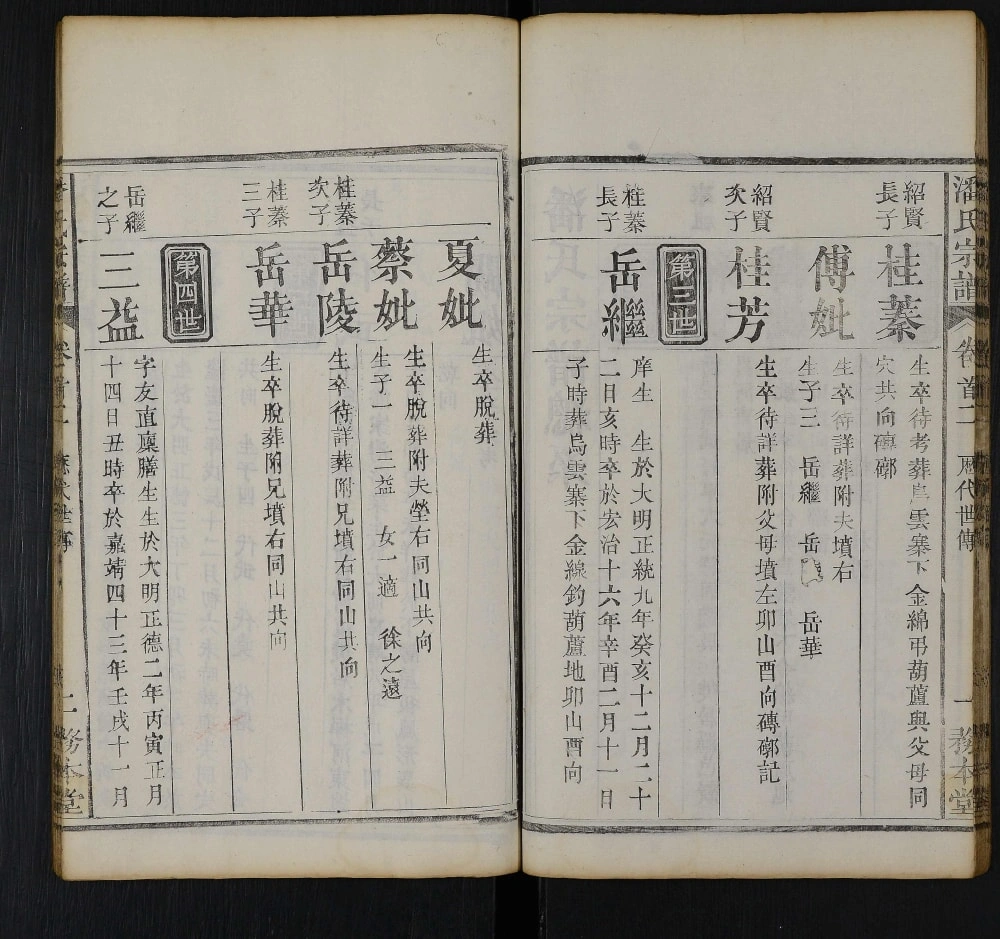 潘氏宗譜 卷首二 歷代世傳 一 務本堂
紹賢
長子
桂蓁
生卒待考葬烏雲寨下金綿弔葫蘆與父母同
穴共向磚槨
傅妣
生卒待詳葬附夫墳右
生子三 岳繼 岳 岳華
紹賢
次子
桂芳
生卒待詳葬附父母墳左卯山酉向磚槨記
第三世
桂蓁
長子
岳繼
庠生 生於大明正統九年癸亥十二月二十
二日亥時卒於宏治十六年辛酉二月十一日
子時葬烏雲寨下金線釣葫蘆地卯山酉向
夏妣
生卒脫葬
蔡妣
生卒脫葬附夫塋右同山共向
生子一 三益 女一適 徐之遠
桂蓁
次子
岳陵
生卒待詳葬附兄墳右同山共向
桂蓁
三子
岳華
生卒脫葬附兄墳右同山共向
第四世
岳繼
之子
三益
字友直廩膳生生於大明正德二年丙寅正月
十四日丑時卒於嘉靖四十三年壬戌十一月
氏宗譜 卷首二 歷代世傳 二 務本堂